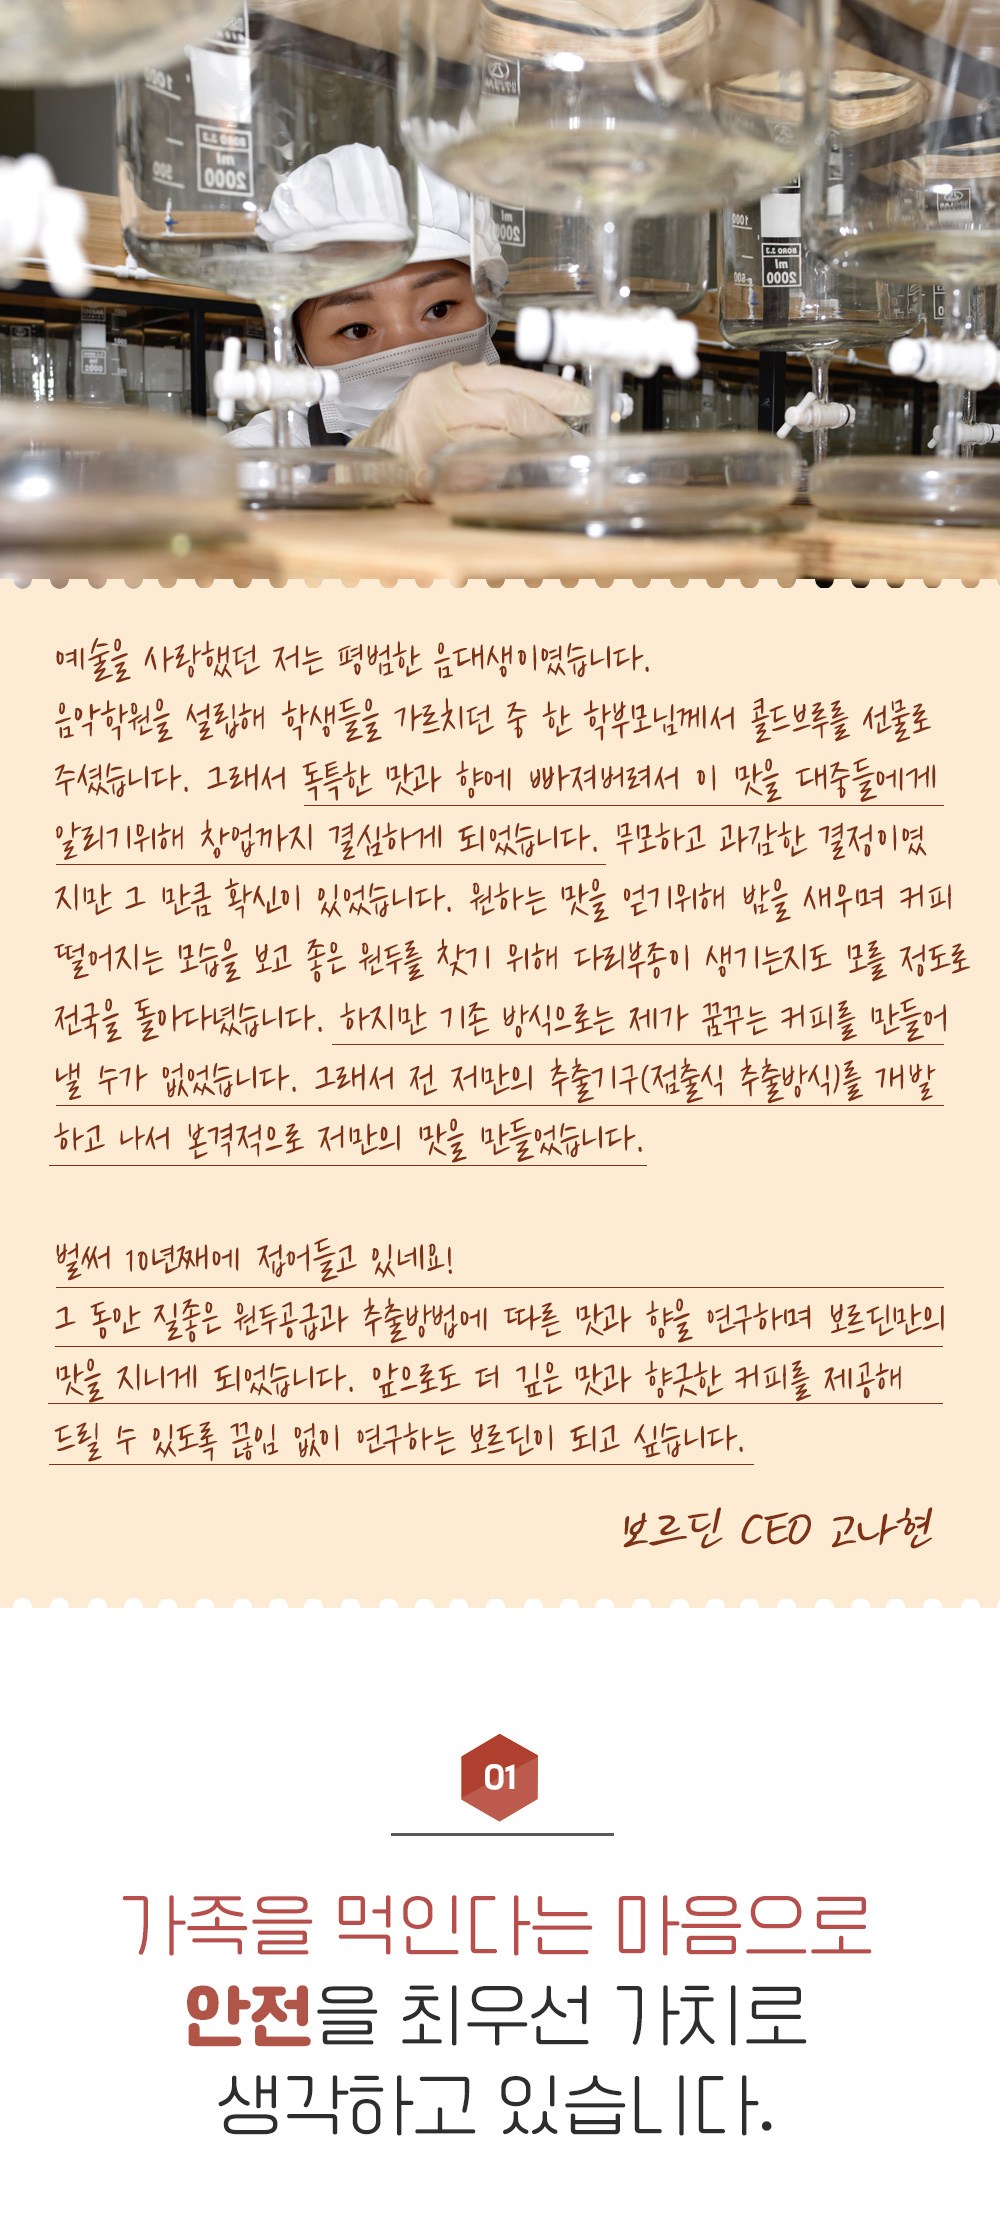 BORO 3.3
ml
2000
1000
BORO 3.3
ml
2000
예술을 사랑했던 저는 평범한 음대생이였습니다.
음악학원을 설립해 학생들을 가르치던 중 한 학부모님께서 콜드브루를 선물로
주셨습니다. 그래서 독특한 맛과 향에 빠져버려서 이 맛을 대중들에게
알리기위해 창업까지 결심하게 되었습니다. 무모하고 과감한 결정이였
지만 그 만큼 확신이 있었습니다. 원하는 맛을 얻기위해 밤을 새우며 커피
떨어지는 모습을 보고 좋은 원두를 찾기 위해 다리부종이 생기는지도 모를 정도로
전국을 돌아다녔습니다. 하지만 기존 방식으로는 제가 꿈꾸는 커피를 만들어
낼 수가 없었습니다. 그래서 전 저만의 추출기구(점출식 추출방식)를 개발
하고 나서 본격적으로 저만의 맛을 만들었습니다.
벌써 10년째에 접어들고 있네요!
그 동안 질좋은 원두공급과 추출방법에 따른 맛과 향을 연구하며 보르딘만의
맛을 지니게 되었습니다. 앞으로도 더 깊은 맛과 향긋한 커피를 제공해
드릴 수 있도록 끊임 없이 연구하는 보르딘이 되고 싶습니다.
보르딘 CEO 고나현
01
가족을 먹인다는 마음으로
안전을 최우선 가치로
생각하고 있습니다.